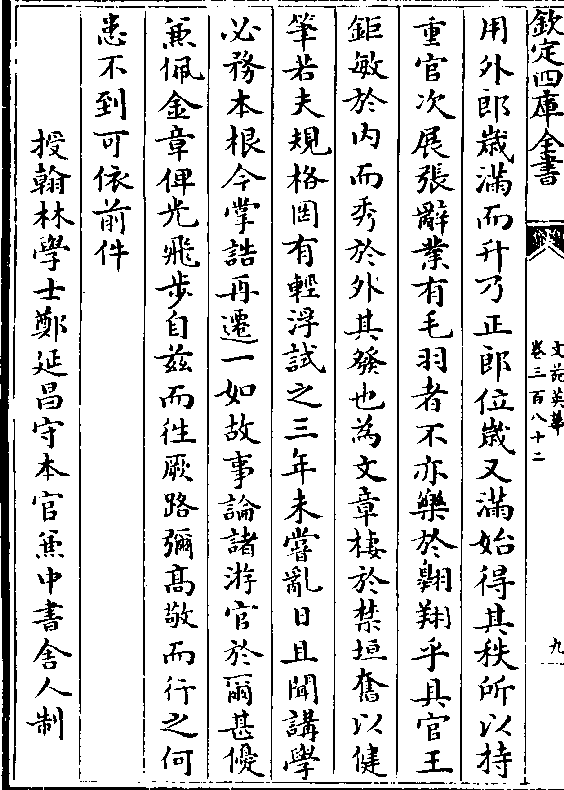 欽定四庫全書
文苑英華
卷三百八十二
九
用外郎嵗滿而升乃正郎位嵗又滿始得其秩所以持
重官次展張辭業有毛羽者不亦樂於翺翔乎具官王
鉅敏於内而秀於外其發也為文章棲於禁垣奮以健
筆若夫規格罔有輕浮試之三年未嘗亂日且聞講學
必務本根今掌誥再遷一如故事論諸游官於爾甚優
兼佩金章俾光飛步自兹而徃厥路彌髙敬而行之何
患不到可依前件
授翰林學士鄭延昌守本官兼中書舍人制